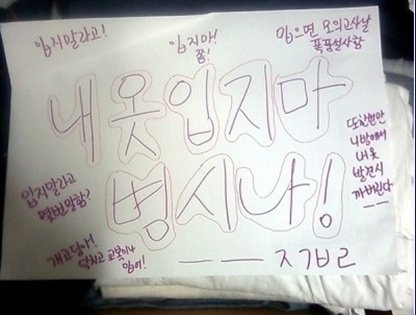 입지말라고!
입지마!
쫌!
입으면 모의고사날
폭풍설사함
내 옷 입지마
병시나!
또한번만
니방에서
내 옷
발견시
까버린다
ㅡㅡ
입지말라고
몇번말함?
개고당사!
닥치고 교복이나
입어!
ㅡㅡ ㅈㄱㅂㄹ